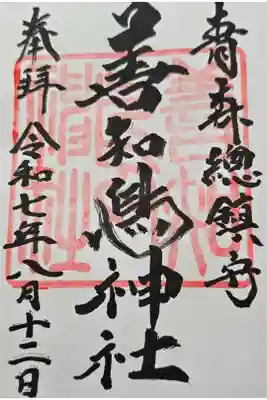 青森總鎮守
善知鳥神社
奉拝 令和七年八月十二日